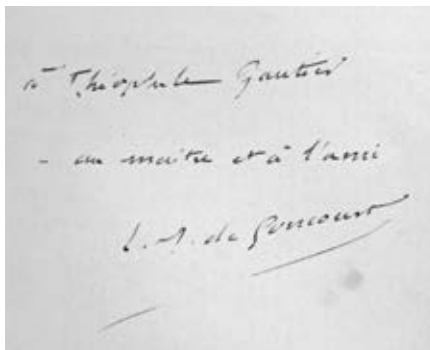 à Théophile Gautier
- au maître et à l'ami
E. J. de Goncourt